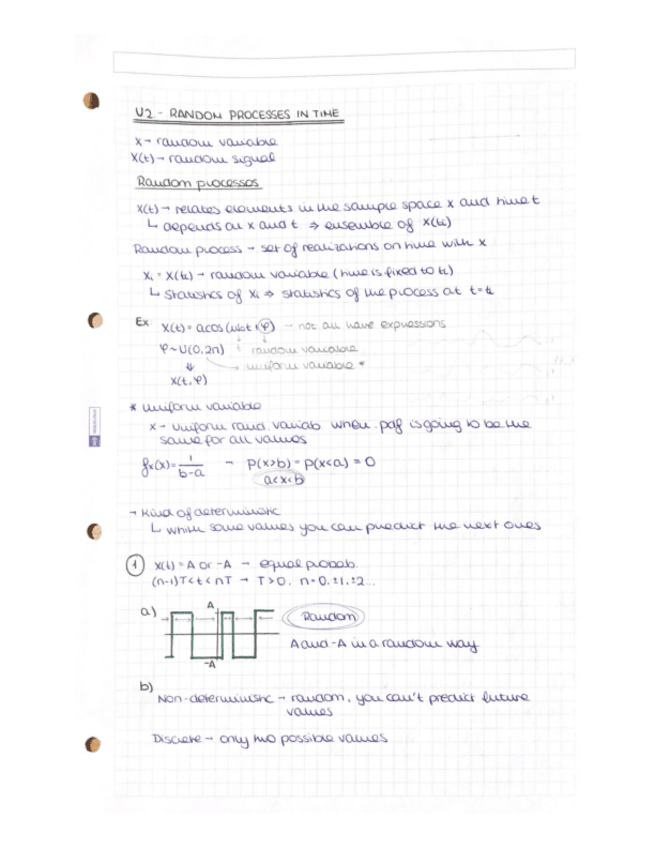 U2 - RANDOM PROCESSES IN TIME
X → random variable
X(t) → random signal
Random processes
X(t) → relates elements in the sample space x and time t
↳ depends on x and t ⇒ ensemble of X(t)
Random process → set of realizations on time with x
Xi = X(ti) → random variable (time is fixed to ti)
↳ Statistics of Xi ⇒ statistics of the process at t=ti
Ex: X(t) = a cos(ω0t + φ) → not all have expressions
φ ~ U(0, 2π) t random variable
⇓ uniform variable *
X(t, φ)
* uniform variable
x → uniform rand. variab when pdf is going to be the
same for all values
fx(x) = 1/(b-a) → P(x>b) = P(x<a) = 0
a<x<b
→ Kind of deterministic
↳ with some values you can predict the next ones
① X(t) = A or -A → equal probab.
(n-1)T < t < nT → T>0, n = 0, ±1, ±2...
a) A Random
A and -A in a random way
-A
b)
Non-deterministic → random, you can't predict future
values
Discrete → only two possible values